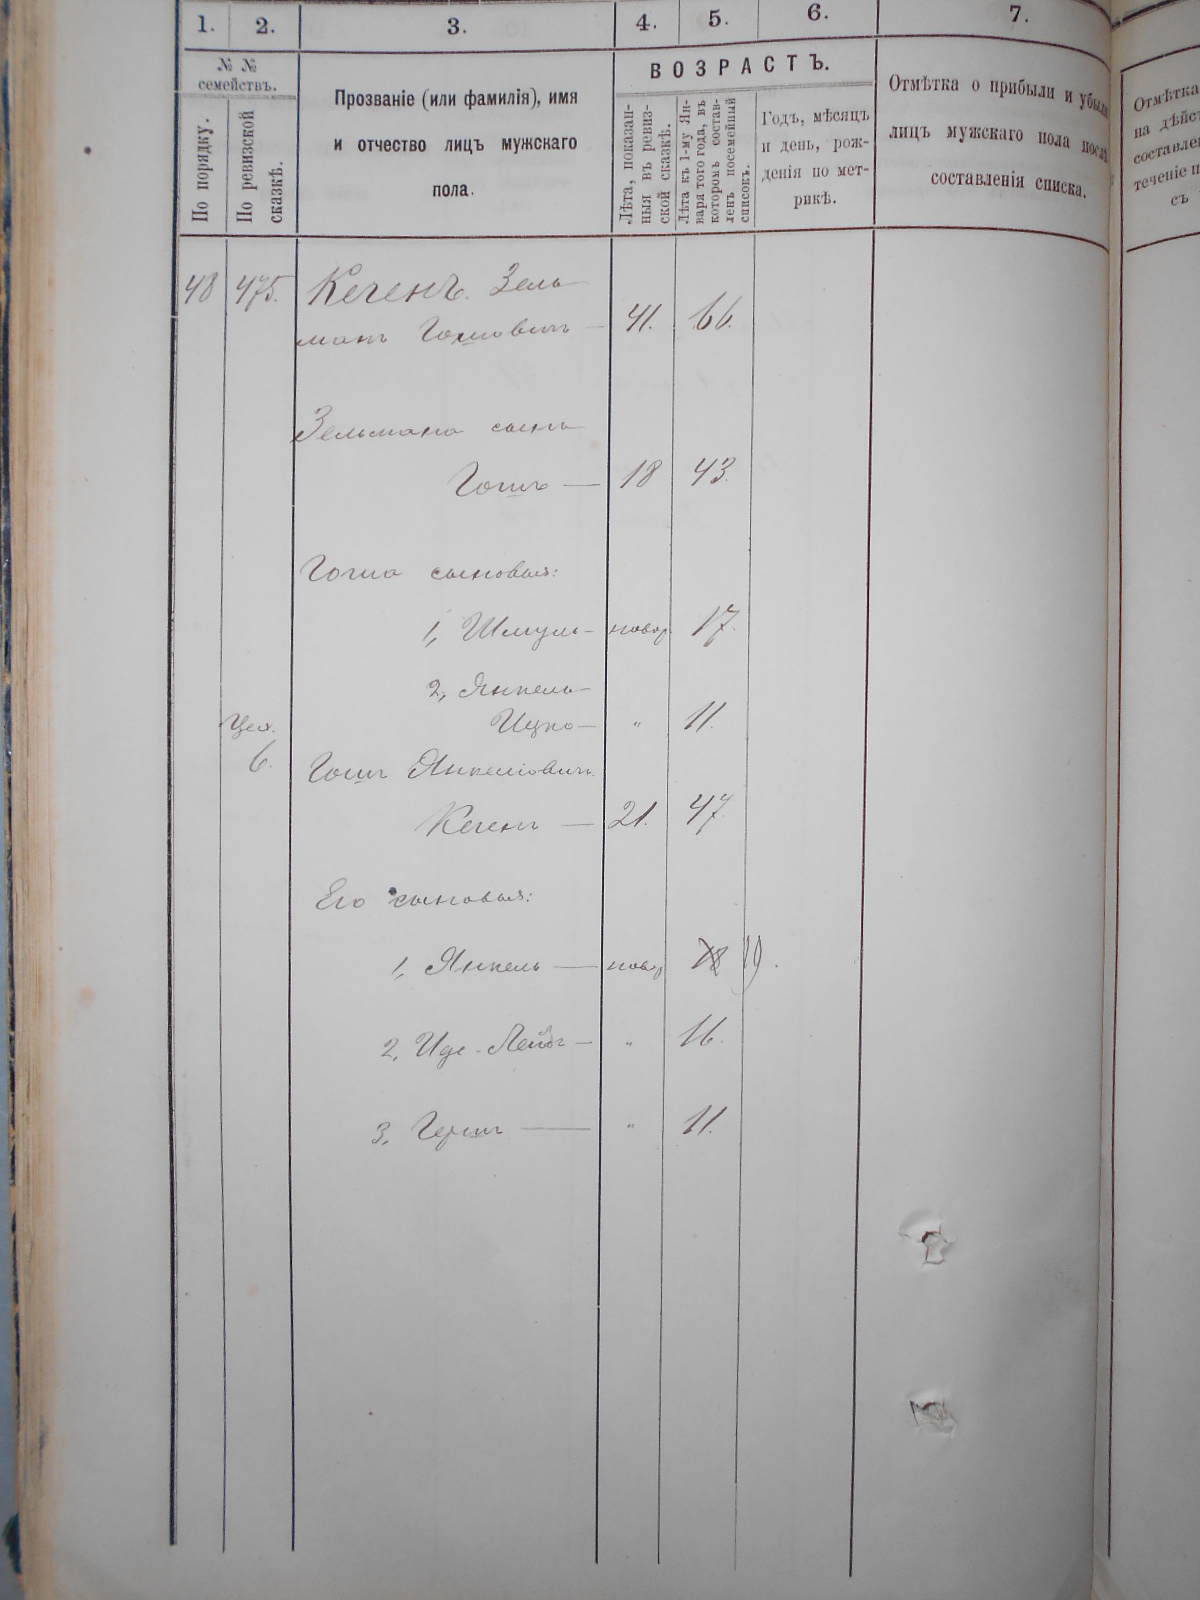 1. 2. 3. 4. 5. 6. 7.
№ №
семействъ.
По порядку.
По ревизской
сказкѣ.
Прозваніе (или фамилія), имя
и отчество лицъ мужскаго
пола.
ВОЗРАСТЪ.
Лѣта, показан-
ныя въ ревиз-
ской сказкѣ.
Лѣта къ 1-му Ян-
варя того года, въ
которомъ состав-
ленъ посемейный
списокъ.
Годъ, мѣсяцъ
и день, рож-
денія по мет-
рикѣ.
Отмѣтка о прибыли и убыли
лицъ мужскаго пола послѣ
составленія списка.
Отмѣтка
на дѣйст
составлен
теченіе п
съ
48 475. Кегенъ. Зель
манъ Гошовичъ — 41. 66.
Зельмана сынъ
Гошъ — 18 43.
Гоша сыновья:
1, Шмуль — новор. 17.
2, Янкель
Ицко — " 11.
Цех.
6. Гошъ Янкеліовичъ
Кегенъ — 21. 47.
Его сыновья:
1, Янкель — новор 18 19.
2, Иде-Лейб — " 16.
3, Гершъ — " 11.